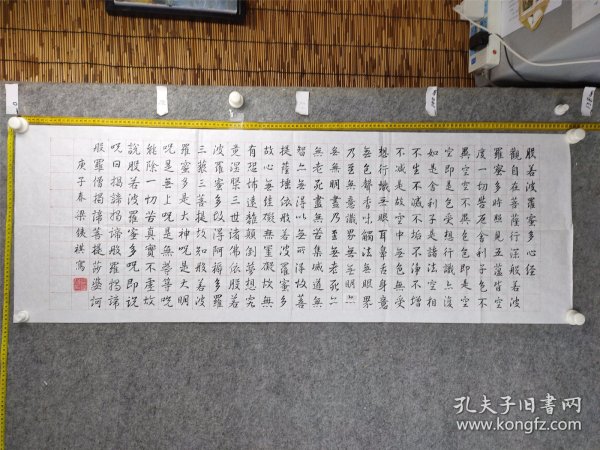 般若波羅蜜多心經
觀自在菩薩行深般若波
羅蜜多時照見五蘊皆空
度一切苦厄舍利子色不
異空空不異色色即是空
空即是色受想行識亦復
如是舍利子是諸法空相
不生不滅不垢不淨不增
不減是故空中無色無受
想行識無眼耳鼻舌身意
無色聲香味觸法無眼界
乃至無意識界無無明亦
無無明盡乃至無老死亦
無老死盡無苦集滅道無
智亦無得以無所得故菩
提薩埵依般若波羅蜜多
故心無罣礙無罣礙故無
有恐怖遠離顛倒夢想究
竟涅槃三世諸佛依般若
波羅蜜多故得阿耨多羅
三藐三菩提故知般若波
羅蜜多是大神咒是大明
咒是無上咒是無等等咒
能除一切苦真實不虛故
說般若波羅蜜多咒即說
咒曰揭諦揭諦般羅揭諦
般羅僧揭諦菩提莎婆訶
庚子春梁俠棋寫
孔夫子旧书网
www.kongfz.com